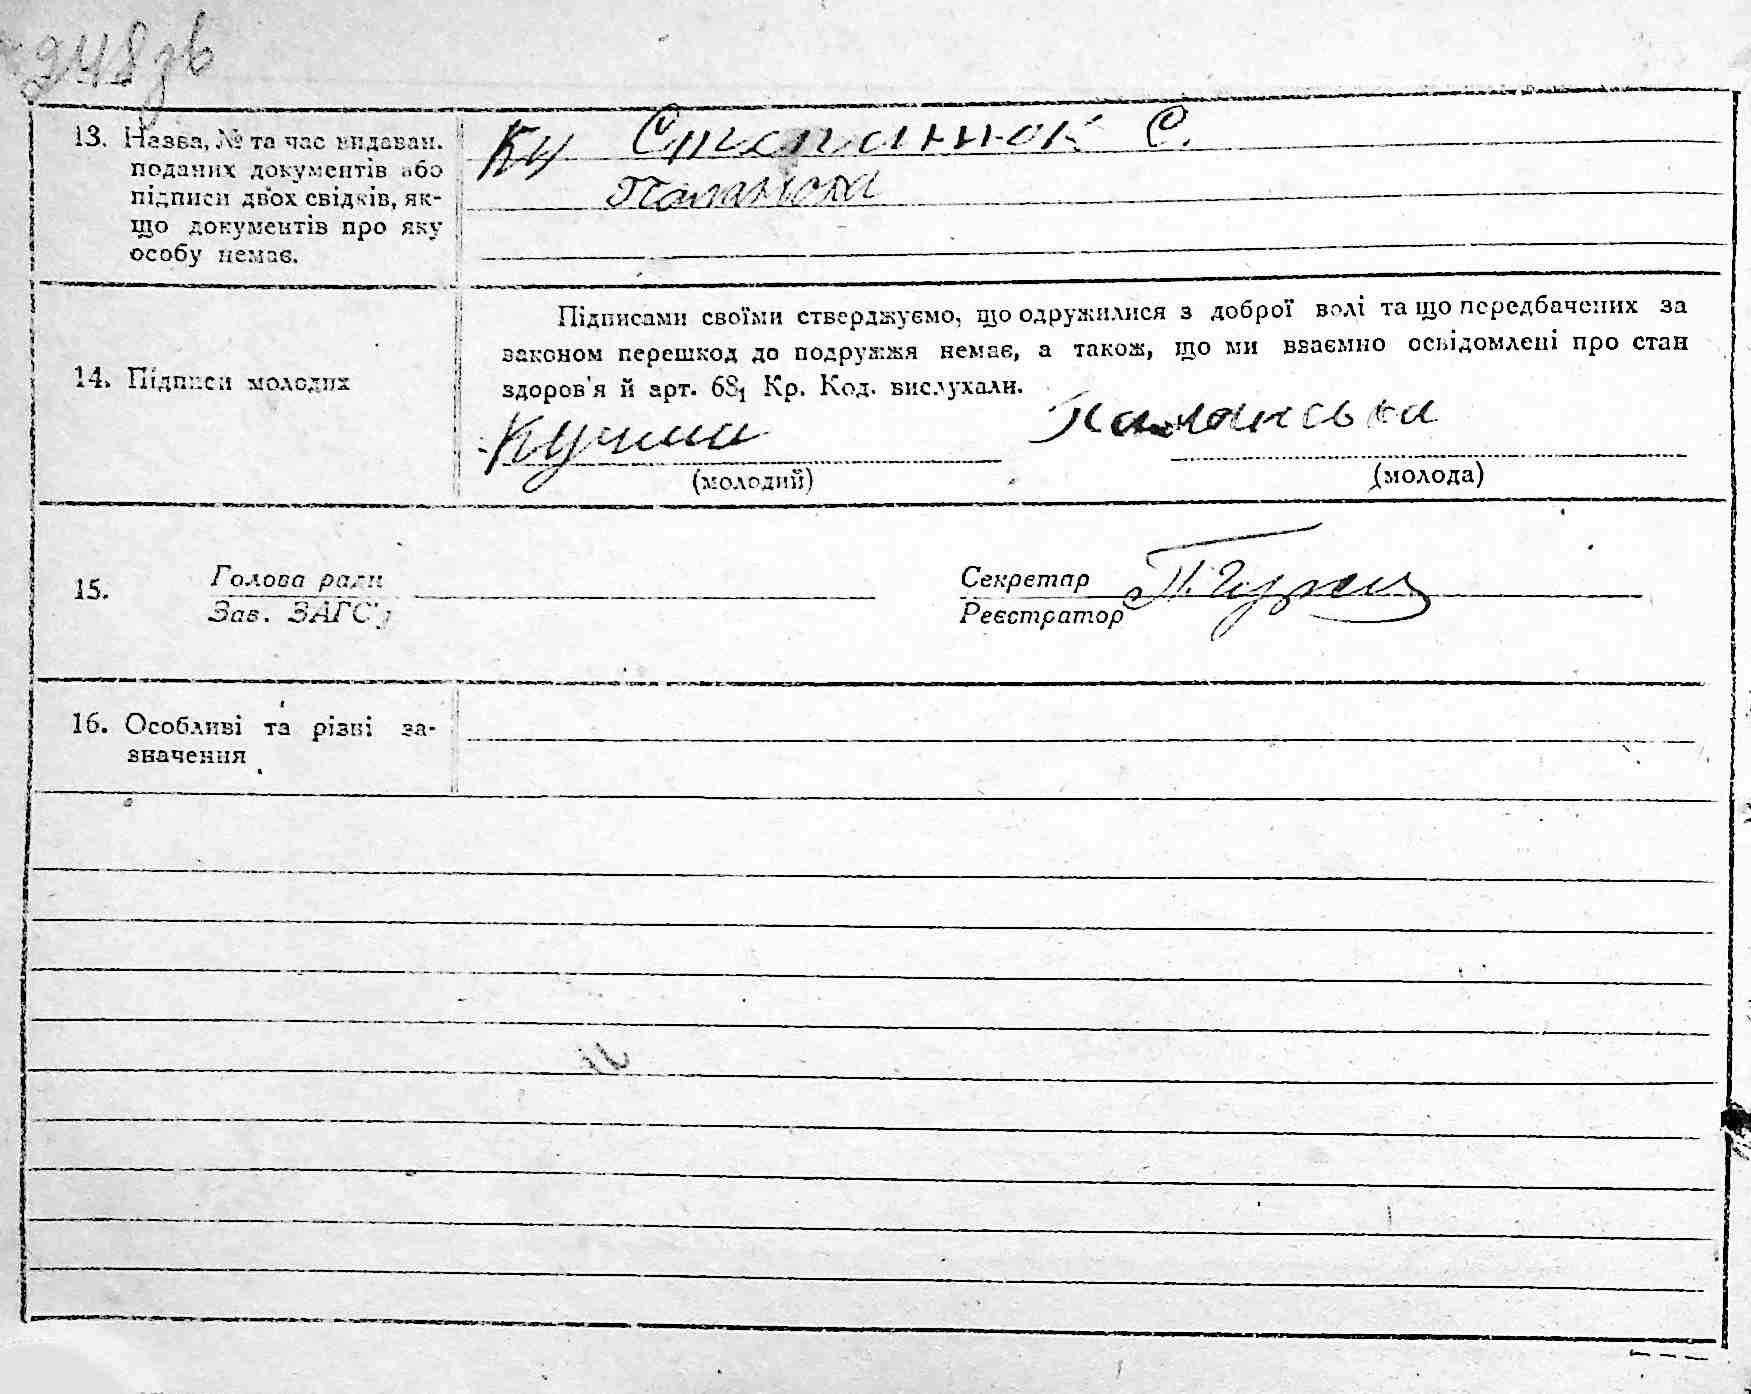 248зв
13. Назва, № та час видаван.
поданих документів або
підписи двох свідків, як-
що документів про яку
особу немає.
Ку Степанюк С.
14. Підписи молодих
Підписами своїми стверджуємо, що одружилися з доброї волі та що передбачених за
законом перешкод до подружжя немає, а також, що ми взаємно освідомлені про стан
здоров'я й арт. 68₁ Кр. Код. вислухали.
Кучма Паланська
(молодий) (молода)
15. Голова ради Секретар
Зав. ЗАГС'у Реєстратор
16. Особливі та різні за-
значення